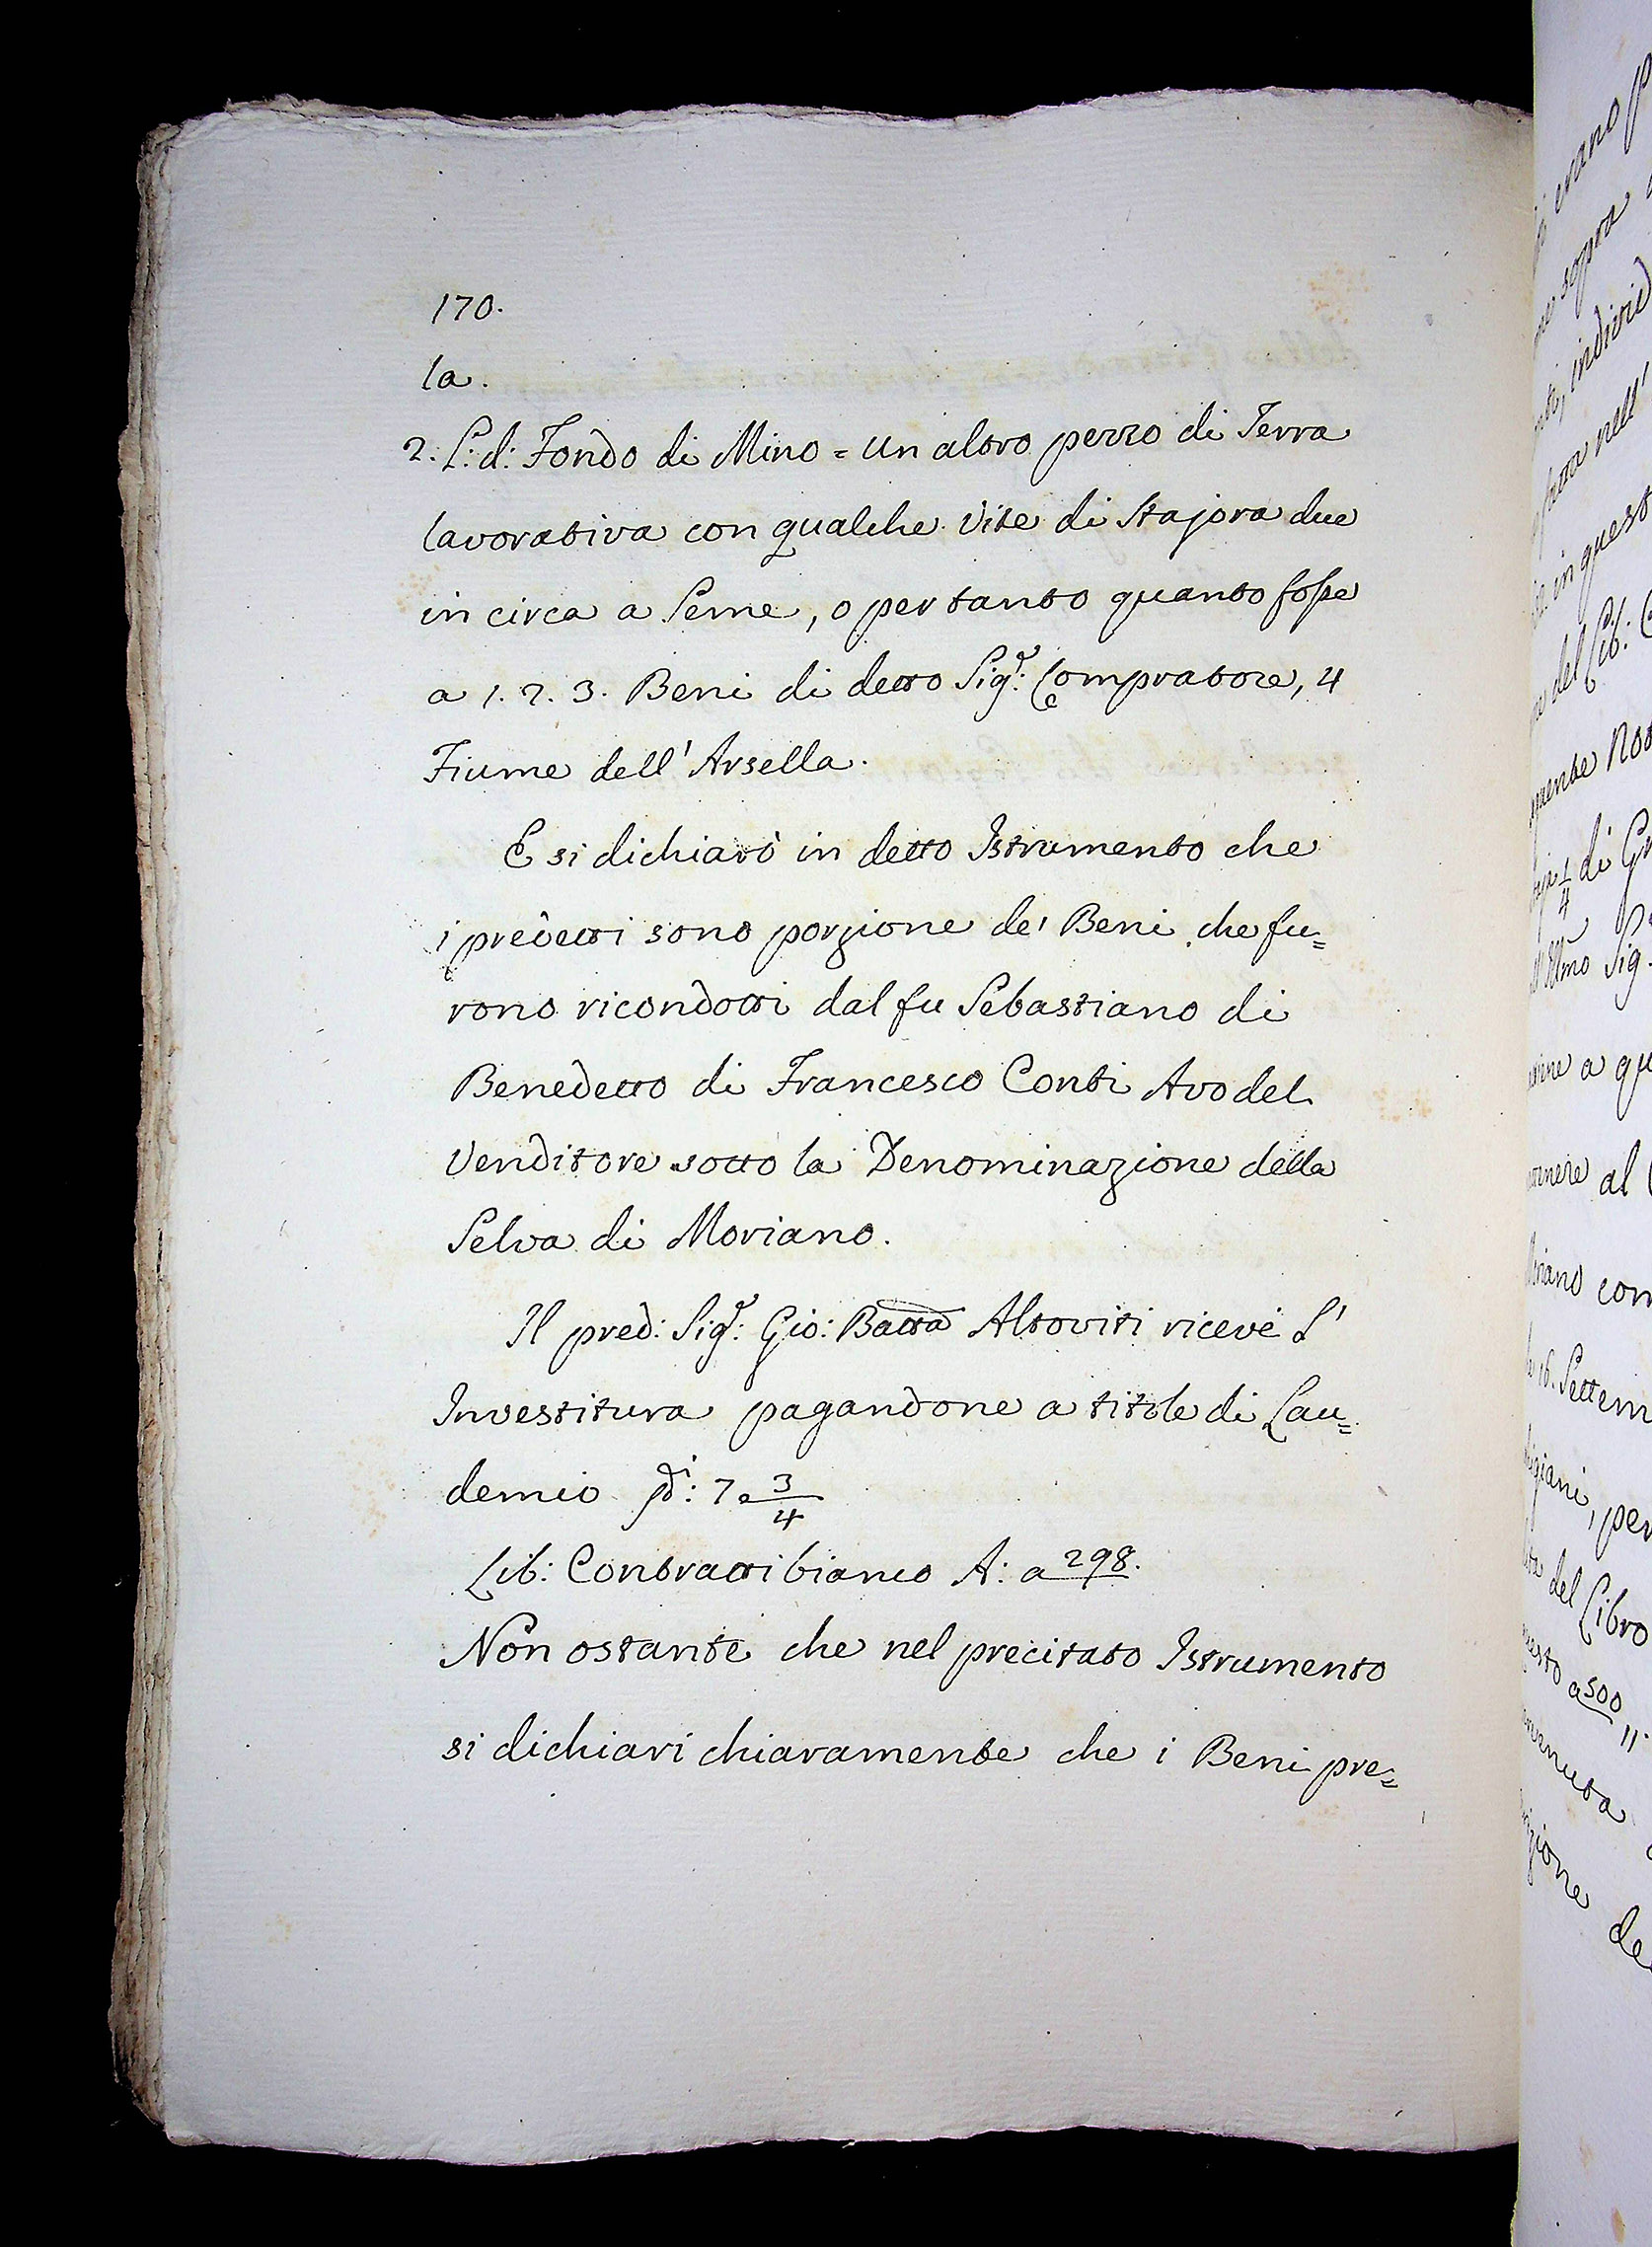 170.
la.
2. L: d: Fondo di Mino = un altro pezzo di Terra
lavorativa con qualche Vite di Stajora due
in circa a Seme, o per tanto quanto fosse
a 1. 2. 3. Beni di detto Sig.r: Compratore, 4
Fiume dell' Arsella.
E si dichiarò in detto Istrumento che
i predetti sono porzione de' Beni che fu=
rono ricondotti dal fu Sebastiano di
Benedetto di Francesco Conti Avo del
Venditore sotto la Denominazione della
Selva di Moriano.
Il pred: Sig.r: Gio: Batta Altoviti ricevè l'
Investitura pagandone a titole di Lau=
demio 7 3/4
Lib: Contratti bianco A: a 298.
Non ostante che nel precitato Istrumento
si dichiari chiaramente che i Beni pre=
erano
sopra
nell'
in quest
del Lib:
di
Sig.
a qu
al
com
16. Settem
per
del Libro
a 500
11.
de